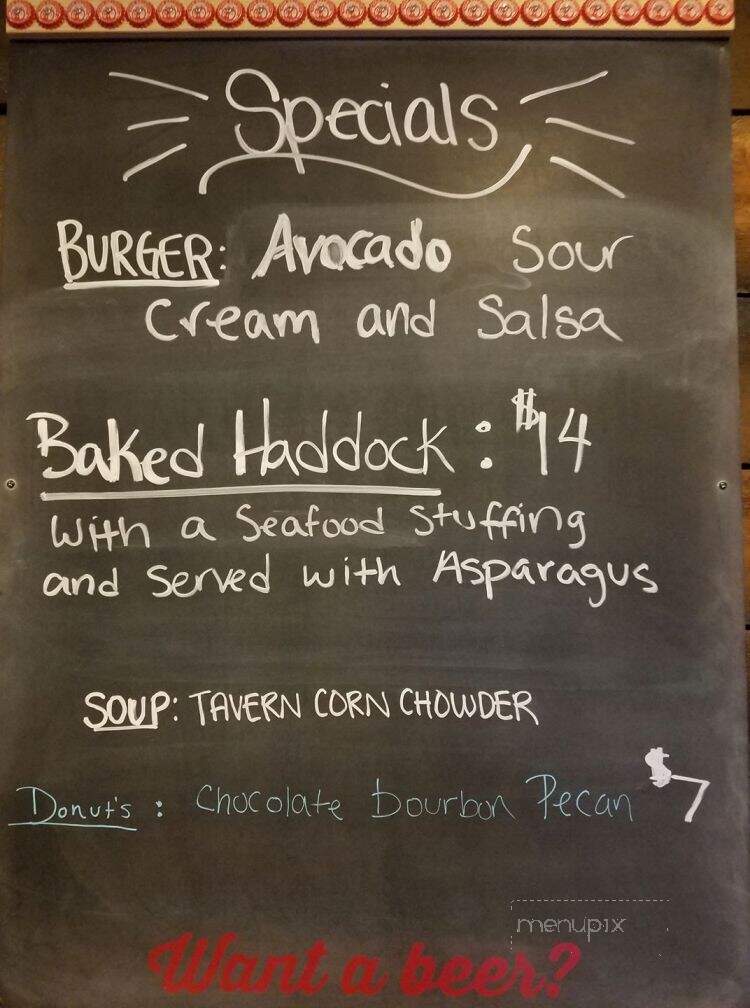 Specials
BURGER: Avocado Sour
Cream and Salsa
Baked Haddock: $14
With a Seafood Stuffing
and Served with Asparagus
SOUP: TAVERN CORN CHOWDER
Donut's: Chocolate bourbon Pecan $7
menupix
Want a beer?